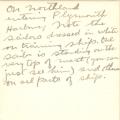 On Northland
entering Plymouth
Harbor. Note the
sailors dressed in white
on training ships. One
sailor is standing on the
very top of mast (you can
just see him) and others
on all parts of ships.